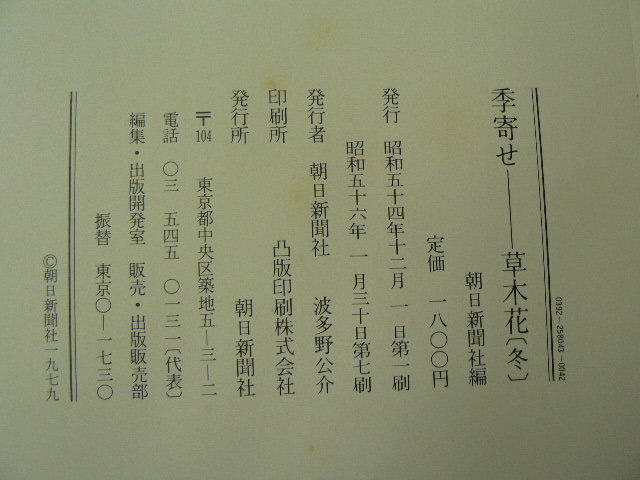 季寄せ――草木花〔冬〕
0392-258043-0042
朝日新聞社編
定価 一八〇〇円
発行 昭和五十四年十二月 一 日第一刷
昭和五十六年 一 月三十日第七刷
発行者 朝日新聞社 波多野公介
印刷所 凸版印刷株式会社
発行所 朝日新聞社
〒104 東京都中央区築地五―三―二
電話 〇三 五四五 〇一三一〔代表〕
編集・出版開発室 販売・出版販売部
振替 東京〇―一七三〇
©朝日新聞社一九七九